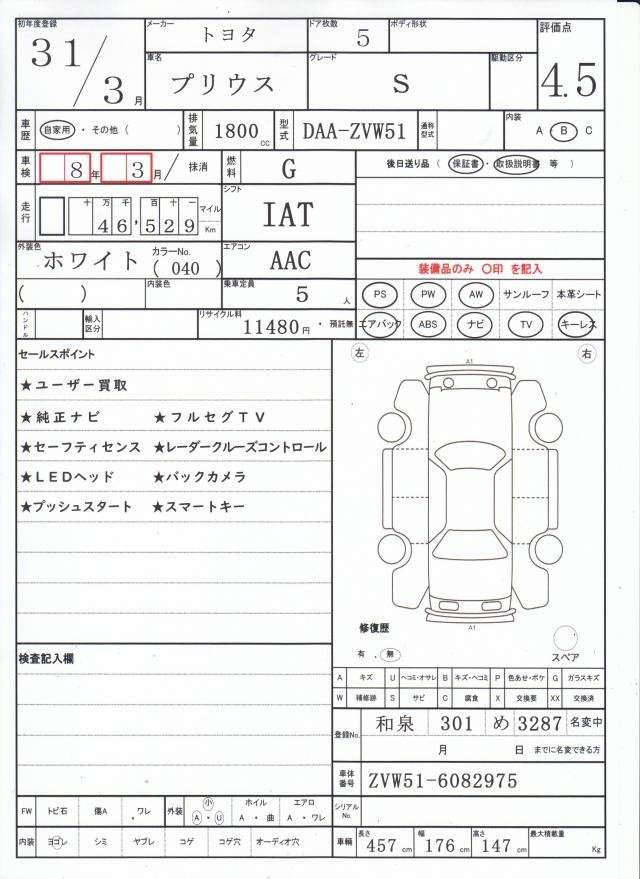 初年度登録 メーカー ドア枚数 ボディ形状 評価点
31/3月 トヨタ 5 4.5
車名 グレード 駆動区分
プリウス S
車歴 自家用・その他( ) 排気量 1800cc 型式 DAA-ZVW51 通称型式 内装 A・B C
車検 8年 3月/ 抹消 燃料 G 後日送り品(保証書・取扱説明書 等)
走行 十万千百十一 46,529 マイル Km シフト IAT
外装色 カラーNo. エアコン
ホワイト (040) AAC 装備品のみ 〇印 を記入
( ) 内装色 乗車定員 5人 PS PW AW サンルーフ 本革シート
ハンドル 輸入区分 リサイクル料 11480円・預託無 エアバッグ ABS ナビ TV キーレス
セールスポイント 左 右
A1
★ユーザー買取
★純正ナビ ★フルセグTV
★セーフティセンス ★レーダークルーズコントロール
★LEDヘッド ★バックカメラ
★プッシュスタート ★スマートキー
A1
修復歴
有 . 無 スペア
検査記入欄
A キズ U ヘコミ・オサレ B キズ・ヘコミ P 色あせ・ボケ G ガラスキズ
W 補修跡 S サビ C 腐食 X 交換要 XX 交換済
登録No. 和泉 301 め 3287 名変中
月 日 までに名変できる方
車体番号 ZVW51-6082975
FW トビ石 傷A ・ワレ 外装 小 A・U ホイル A・曲 エアロ A・ワレ シリアルNo.
内装 ヨゴレ シミ ヤブレ コゲ コゲ穴 オーディオ穴 車輛 長さ 457cm 幅 176cm 高さ 147cm 最大積載量 Kg